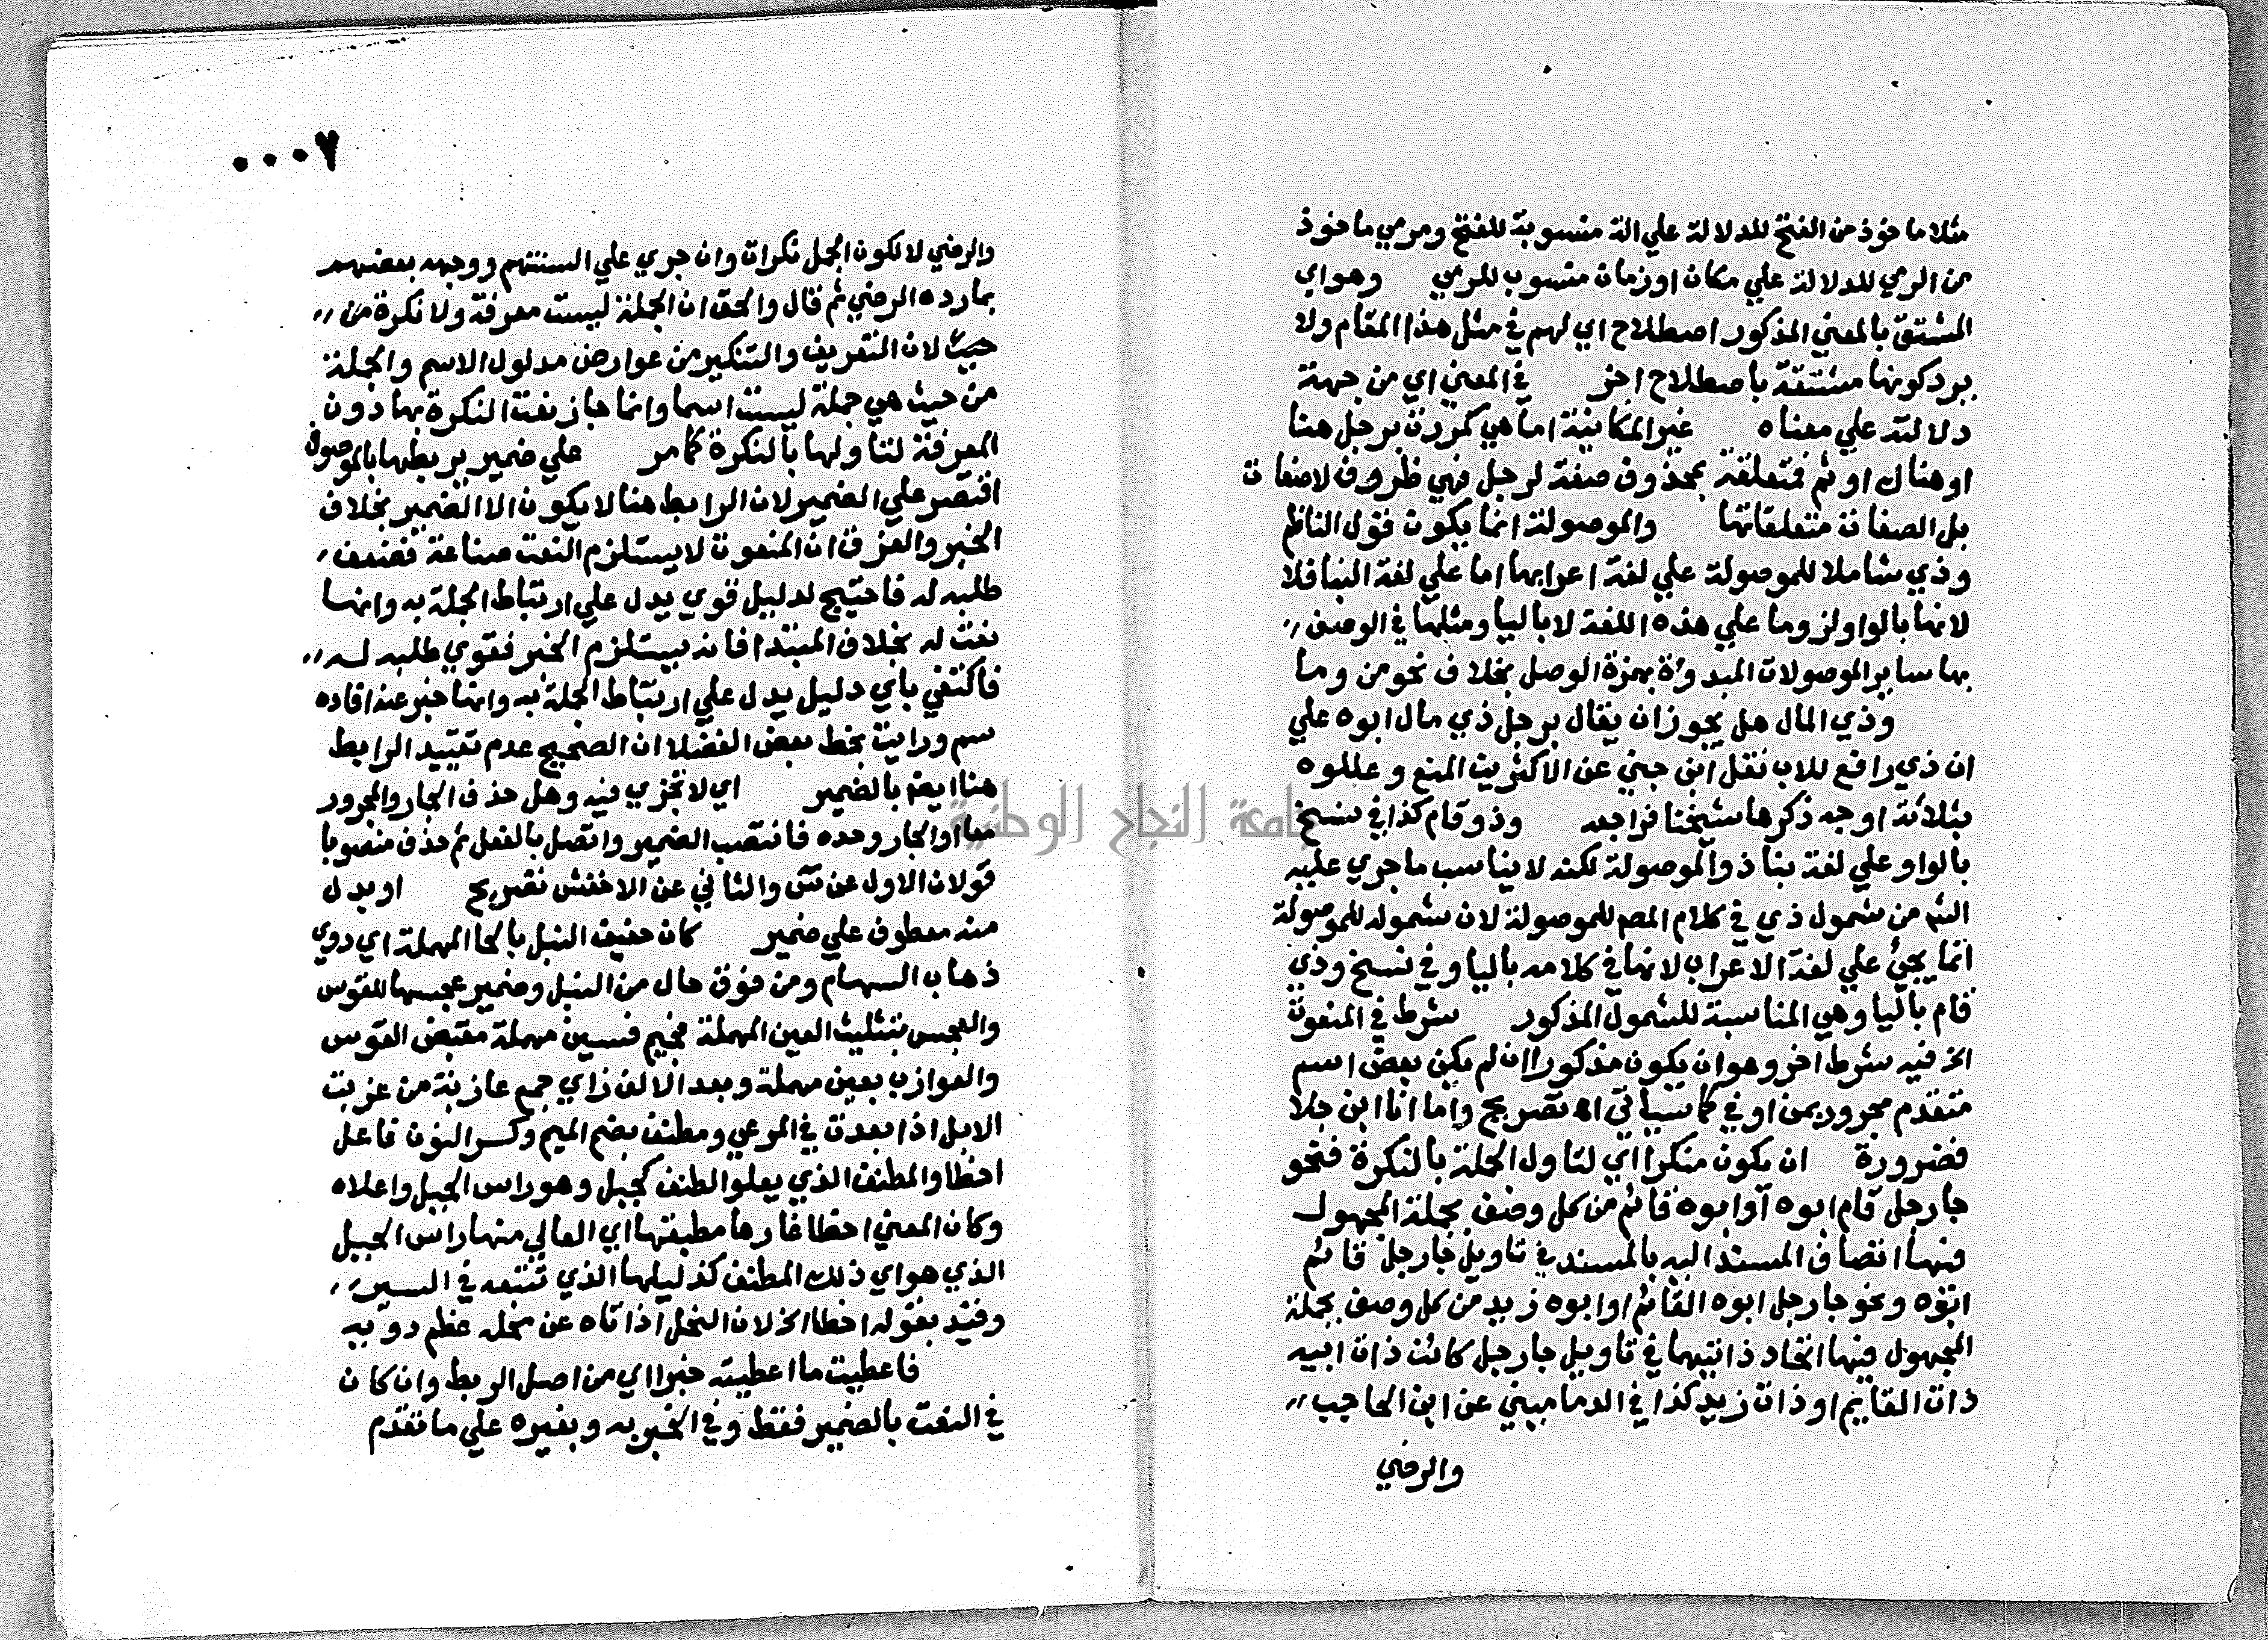 مثلا ماخوذ من الفتح للدلالة علي الة منسوبة للفتح ومرمي ماخوذ
من الرمي للدلالة علي مكان او زمان منسوب للرمي وهو اي
المشتق بالمعني المذكور اصطلاح اي لهم في مثل هذا المقام ولا
يرد كونها مشتقة باصطلاح اخر في المعني اي من جهة
دلالته علي معناه غير المكانية اما هي كمررت برجل هنا
او هناك او ثم فمتعلقة بمحذوف صفة لرجل فهي ظروف لا صفات
بل الصفات متعلقاتها والموصولة انما يكون قول الناظم
وذي شاملا للموصولة علي لغة اعرابها اما علي لغة البنا فلا
لانها بالواو لزوما علي هذه اللغة لا باليا ومثلها في الوصف
بها ساير الموصولات المبدوة بهمزة الوصل بخلاف نحو من وما
وذي المال هل يجوز ان يقال برجل ذي مال ابوه علي
ان ذي رافع للاب نقل ابن جني عن الاكثرين المنع وعللوه
بثلاثة اوجه ذكرها شيخنا فراجعه وذو قام كذا في نسخ
بالواو علي لغة بنا ذو الموصولة لكنه لا يناسب ما جري عليه
الشم من شمول ذي في كلام المصم للموصولة لان شموله للموصولة
انما يجئ علي لغة الاعراب لانها في كلامه باليا وفي نسخ وذي
قام باليا وهي المناسبة للشمول المذكور شرط في المنعوت
الخ فيه شرط اخر وهو ان يكون مذكورا ان لم يكن بعض اسم
متقدم مجرور بمن او في كما سيأتي اه تصريح واما انا ابن جلا
فضرورة ان يكون منكرا اي لتاول الجملة بالنكرة فنحو
جا رجل قام ابوه او ابوه قائم من كل وصف بجملة المجهول
فيها اتصاف المسند اليه بالمسند في تاويل جا رجل قائم
ابوه ونحو جا رجل ابوه القائم او ابوه زيد من كل وصف بجملة
المجهول فيها اتحاد ذاتيهما في تاويل جا رجل كائنت ذات ابيه
ذات القايم او ذات زيد كذا في الدماميني عن ابن الحاجب
والرضي
٠٠٠٧
والرضي لا لكون الجمل نكرات وان جري علي السنتهم ووجهه بعضهم
بما رده الرضي ثم قال والحق ان الجملة ليست معرفة ولا نكرة من
حيث لان التعريف والتنكير من عوارض مدلول الاسم والجملة
من حيث هي جملة ليست اسما وانما جاز نعت النكرة بها دون
المعرفة لتاولها بالنكرة كما مر علي ضمير يربطها بالموصوف
اقتصر علي الضمير لان الرابط هنا لا يكون الا الضمير بخلاف
الخبر والفرق ان المنعوت لا يستلزم النعت صناعة فضعف
طلبه له فاحتيج لدليل قوي يدل علي ارتباط الجملة به وانها
نعت له بخلاف المبتدا فانه يستلزم الخبر فقوي طلبه له
فاكتفي باي دليل يدل علي ارتباط الجملة به وانها خبر عنه افاده
سم ورايت بخط بعض الفضلا ان الصحيح عدم تقييد الرابط
هنا ايضا بالضمير اي لا تجزي فيه وهل حذف الجار والمجرور
معا او الجار وحده فانتصب الضمير واتصل بالفعل ثم حذف منصوبا
قولان الاول عن س والثاني عن الاخفش تصريح او بدل
منه معطوف علي ضمير كان حفيف النبل بالحا المهملة اي دوي
ذهاب السهام ومن فوق حال من النبل وضمير عجسها للقوس
والعجس بتثليث العين المهملة فجيم فسين مهملة مقبض القوس
والعوازب بعين مهملة وبعد الالف زاي جمع عازبة من عزبت
الابل اذا بعدت في المرعي ومطنف بضم الميم وكسر النون فاعل
اخطا والمطنف الذي يعلو الطنف كجبل وهو راس الجبل واعلاه
وكان المعني اخطا غارها مطنفها اي العالي منها راس الجبل
الذي هو اي ذلك المطنف كدليلها الذي تتبعه في السير
وقيد بقوله اخطا الخ لان النحل اذا تاه عن محله عظم دويه
فاعطيت ما اعطيته خبرا اي من اصل الربط وان كان
في النعت بالضمير فقط وفي الخبر به وبغيره علي ما تقدم
جامعة النجاح الوطنية